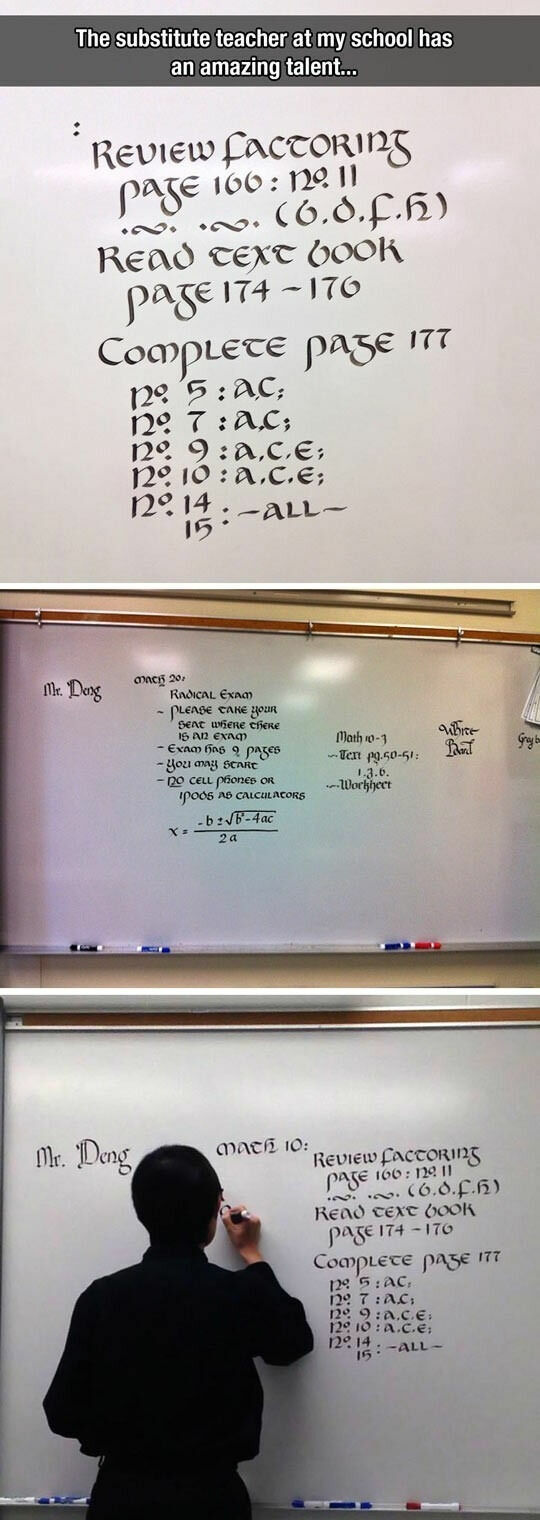 The substitute teacher at my school has
an amazing talent...
:
Review Factoring
page 166: no. 11
.~. .~. (b.d.f.h)
Read text book
page 174 ~ 176
Complete page 177
no. 5 : a,c;
no. 7 : a,c;
no. 9 : a,c,e;
no. 10 : a,c,e;
no. 14
15 : ~all~
Mr. Deng
Math 20:
Radical Exam
~ Please take your
seat where there
is an exam
- Exam has 9 pages
- You may start
- no cell phones or
ipods as calculators
x = -b ± √b²-4ac
2a
Math 10-3
~ Text pg.50-51:
1.3.6.
~ Worksheet
White
Board
Mr. Deng
Math 10:
Review Factoring
page 166: no. 11
.~. .~. (b.d.f.h)
Read text book
page 174 ~ 176
Complete page 177
no. 5 : a,c;
no. 7 : a,c;
no. 9 : a,c,e;
no. 10 : a,c,e;
no. 14
15 : ~all~